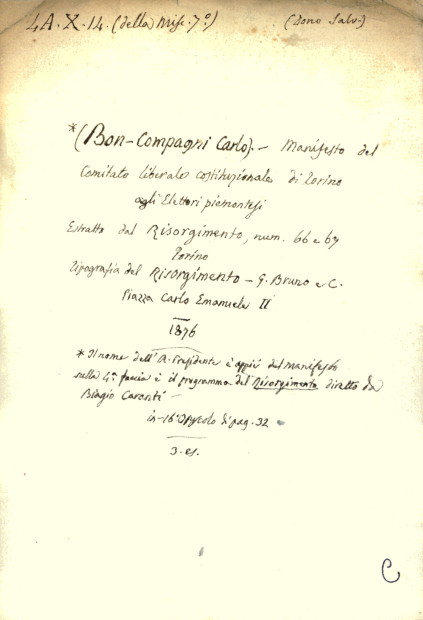 4A.X.14. (della Misc. 7°)
(Dono Salv.)
*(Bon-Compagni Carlo). - Manifesto del
Comitato liberale costituzionale di Torino
agli Elettori piemontesi
Estratto dal Risorgimento, num. 66 e 67
Torino
Tipografia del Risorgimento - G. Bruno e C.
Piazza Carlo Emanuele II
1876
* Il nome dell'A. Presidente è appiè del manifesto
sulla 4ª faccia è il programma del Risorgimento diretto da
Biagio Caranti -
in-16° di pag. 32
3. es.
C